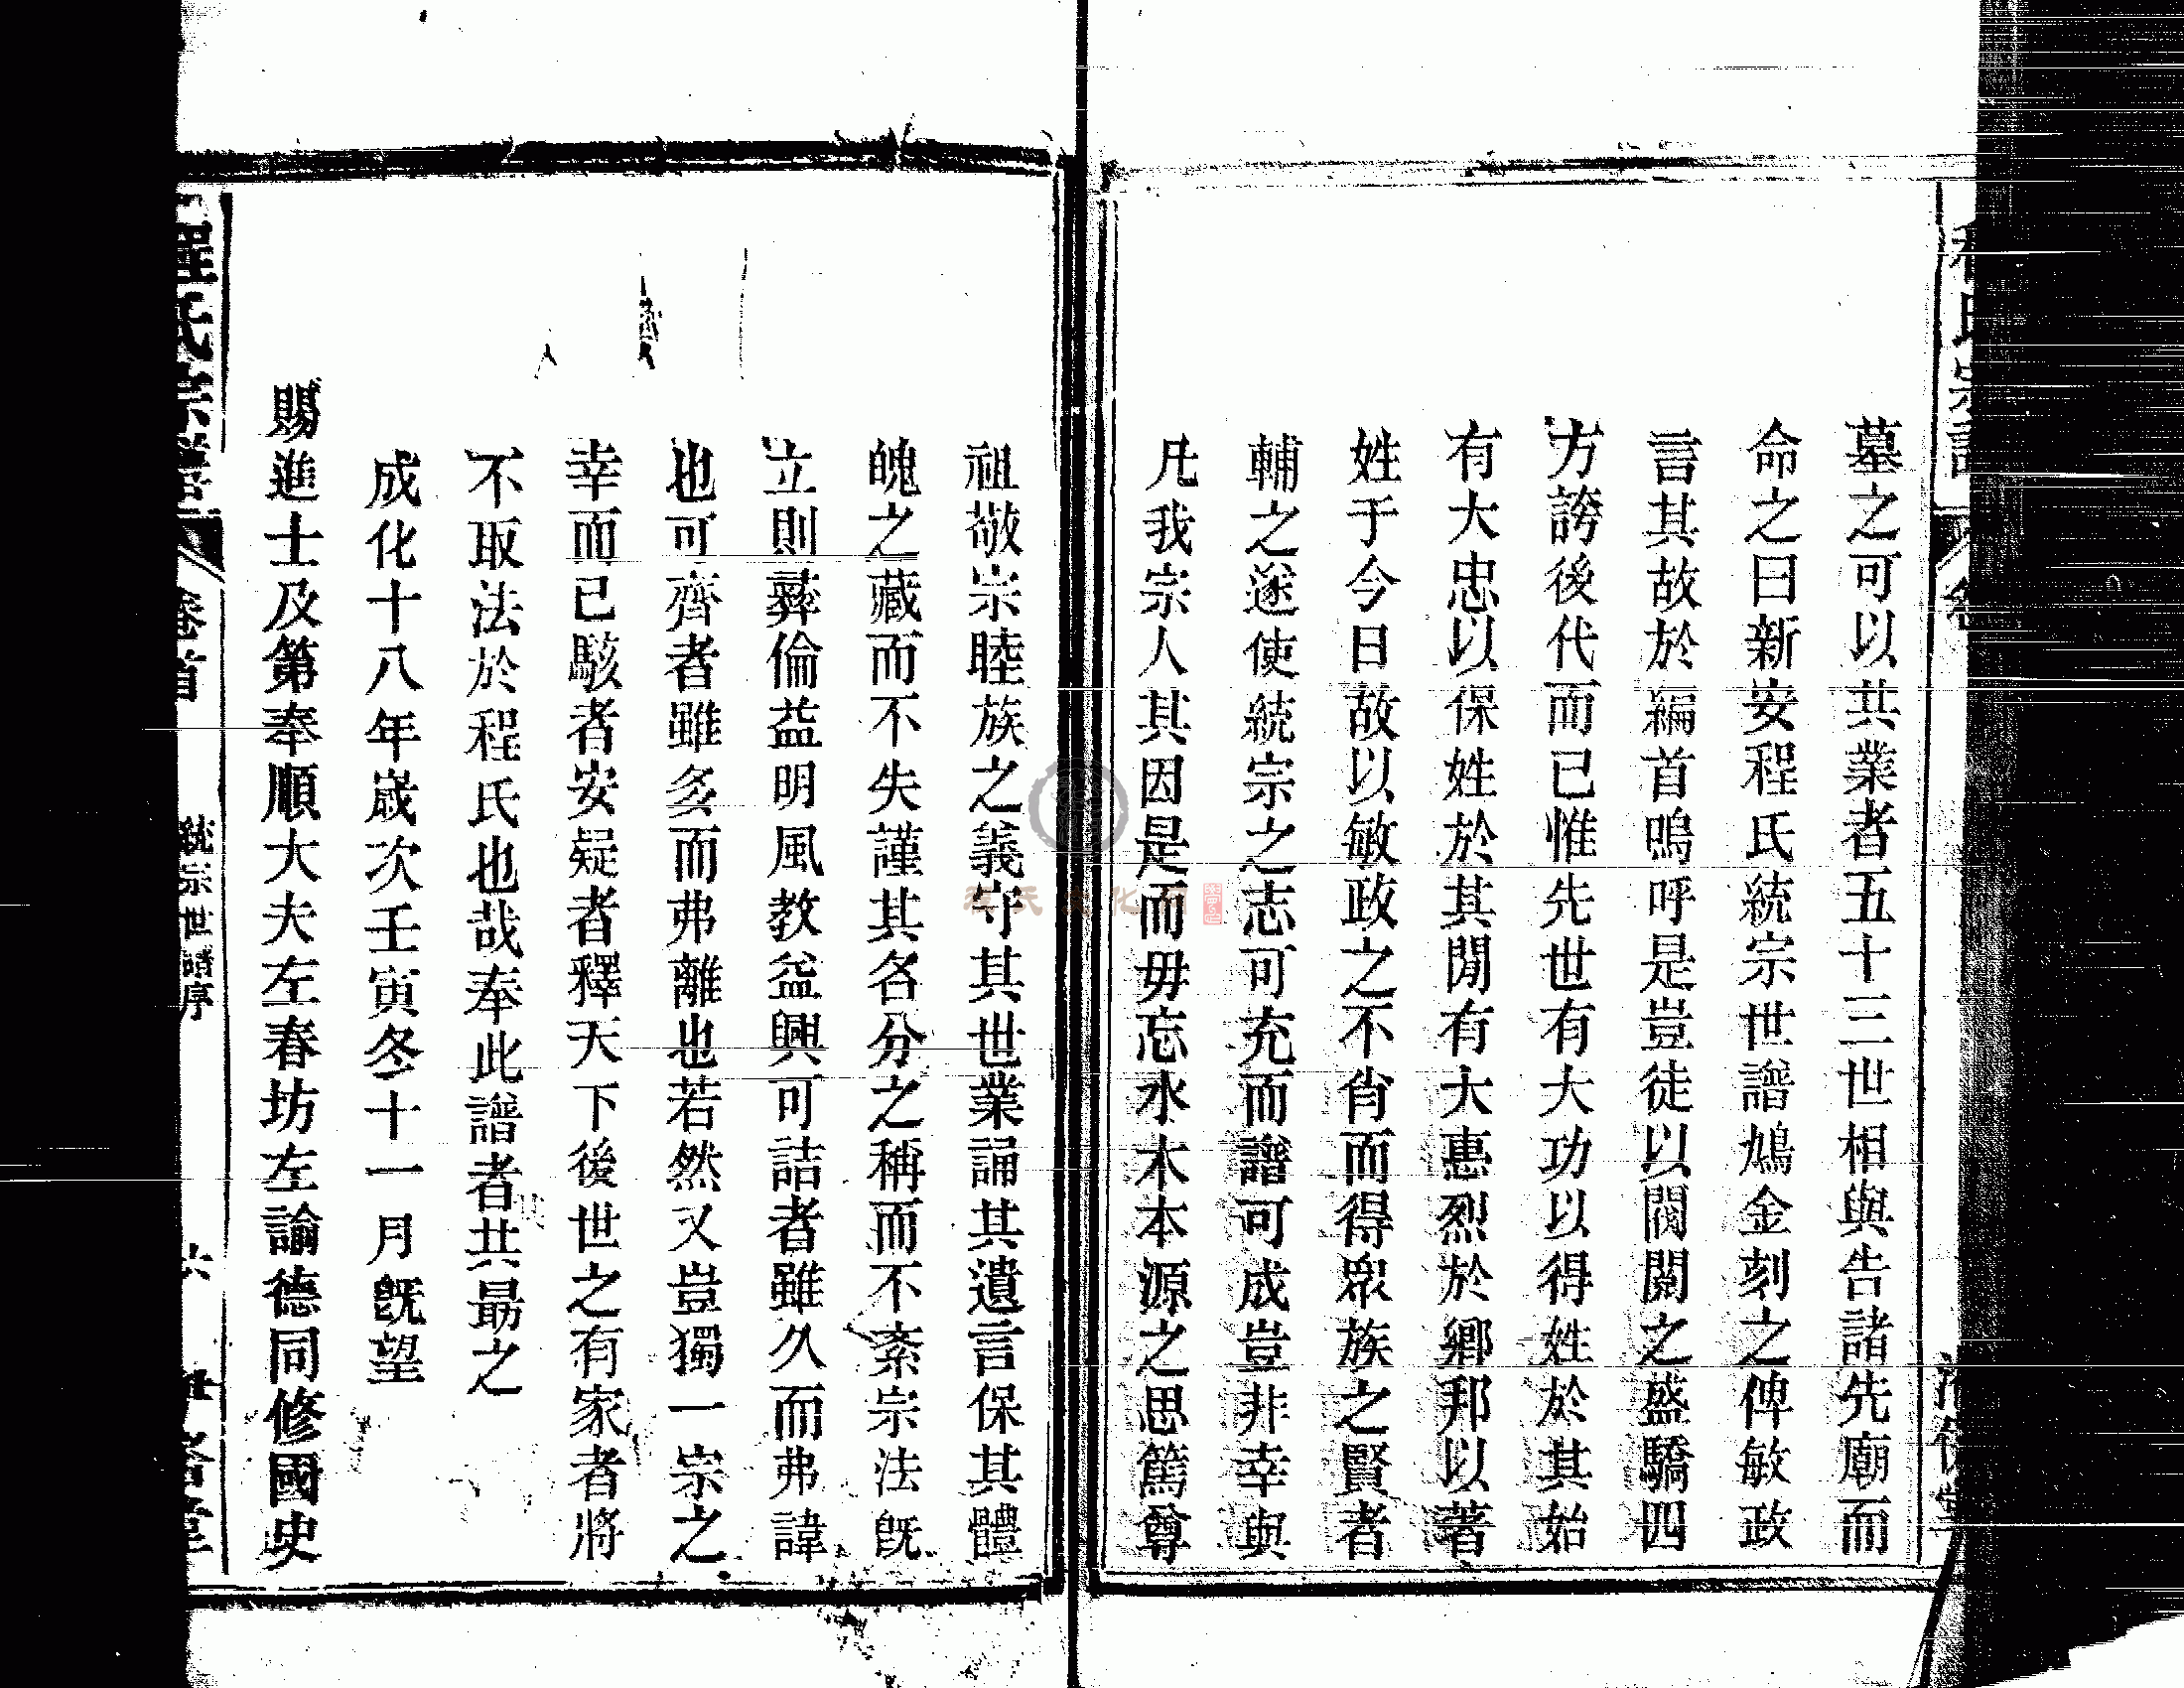 墓之可以共業者五十三世相與告諸先廟而
命之曰新安程氏統宗世譜鳩金刻之俾敏政
言其故於編首嗚呼是豈徒以閥閱之盛驕四
方誇後代而已惟先世有大功以得姓於其始
有大忠以保姓於其閒有大惠烈於鄉邦以著
姓于今日故以敏政之不肖而得眾族之賢者
輔之遂使統宗之志可充而譜可成豈非幸與
凡我宗人其因是而毋忘水木本源之思篤尊
祖敬宗睦族之義守其世業誦其遺言保其體
魄之藏而不失謹其各分之稱而不紊宗法旣
立則彞倫益明風教益興可詰者雖久而弗諱
也可齊者雖多而弗離也若然又豈獨一宗之
幸而已駭者安疑者釋天下後世之有家者將
不取法於程氏也哉奉此譜者共最之
成化十八年歲次壬寅冬十一月旣望
賜進士及第奉順大夫左春坊左諭德同修國史
程氏宗譜 卷首 統宗世譜序 六